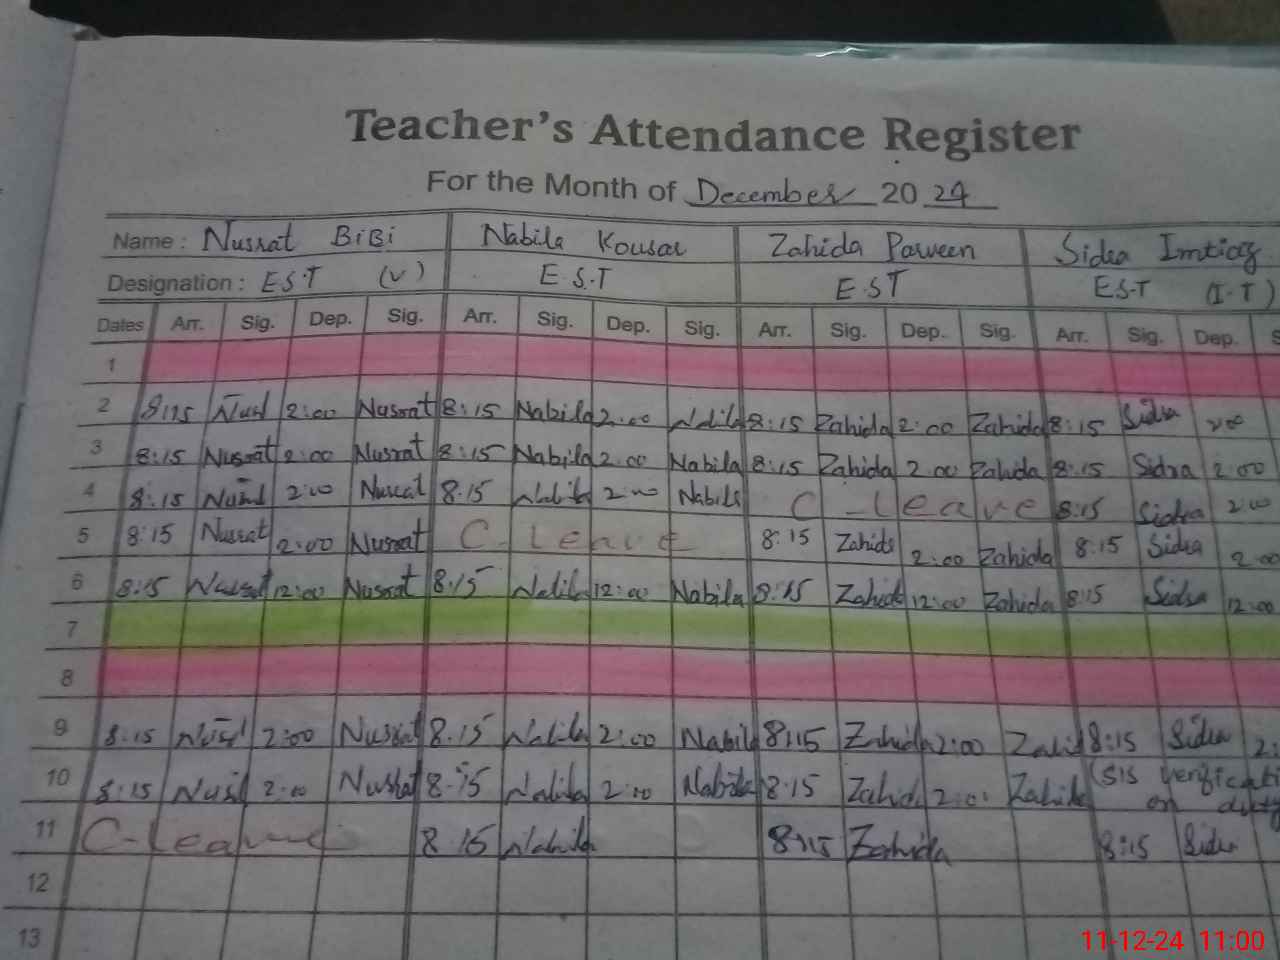 Teacher's Attendance Register
For the Month of December 2024
Name : Nusrat BiBi Nabila Kousar Zahida Parveen Sidra Imtiaz
Designation : E.S.T (V) E.S.T E.S.T E.S.T (I.T)
Dates Arr. Sig. Dep. Sig. Arr. Sig. Dep. Sig. Arr. Sig. Dep. Sig. Arr. Sig. Dep. S
1
2 8:15 Nusrat 2:00 Nusrat 8:15 Nabila 2:00 Nabila 8:15 Zahida 2:00 Zahida 8:15 Sidra 2:00
3 8:15 Nusrat 2:00 Nusrat 8:15 Nabila 2:00 Nabila 8:15 Zahida 2:00 Zahida 8:15 Sidra 2:00
4 8:15 Nusrat 2:00 Nusrat 8:15 Nabila 2:00 Nabila C-leave 8:15 Sidra 2:00
5 8:15 Nusrat 2:00 Nusrat C-leave 8:15 Zahida 2:00 Zahida 8:15 Sidra 2:00
6 8:15 Nusrat 12:00 Nusrat 8:15 Nabila 12:00 Nabila 8:15 Zahida 12:00 Zahida 8:15 Sidra 12:00
7
8
9 8:15 Nusrat 2:00 Nusrat 8:15 Nabila 2:00 Nabila 8:15 Zahida 2:00 Zahida 8:15 Sidra 2:
10 8:15 Nusrat 2:00 Nusrat 8:15 Nabila 2:00 Nabila 8:15 Zahida 2:00 Zahida (SIS verificati
on duty
11 C-leave 8:15 Nabila 8:15 Zahida 8:15 Sidra
12
13
11-12-24 11:00